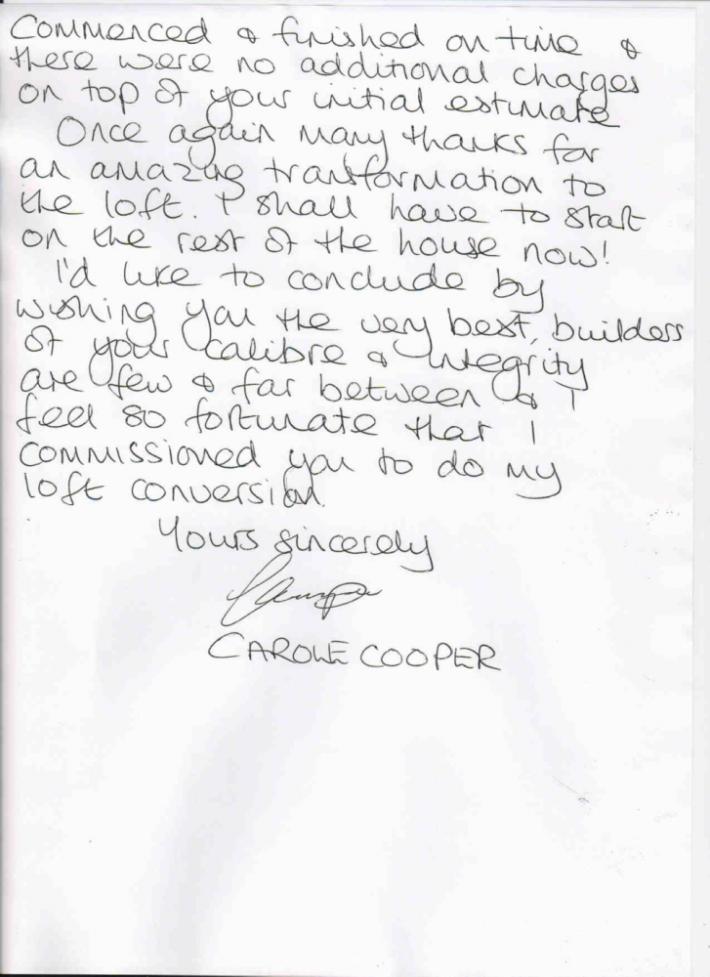 Commenced & finished on time &
there were no additional charges
on top of your initial estimate
Once again many thanks for
an amazing transformation to
the loft. I shall have to start
on the rest of the house now!
I'd like to conclude by
wishing you the very best, builders
of your calibre & integrity
are few & far between & I
feel so fortunate that I
commissioned you to do my
loft conversion.
Yours sincerely
CAROLE COOPER